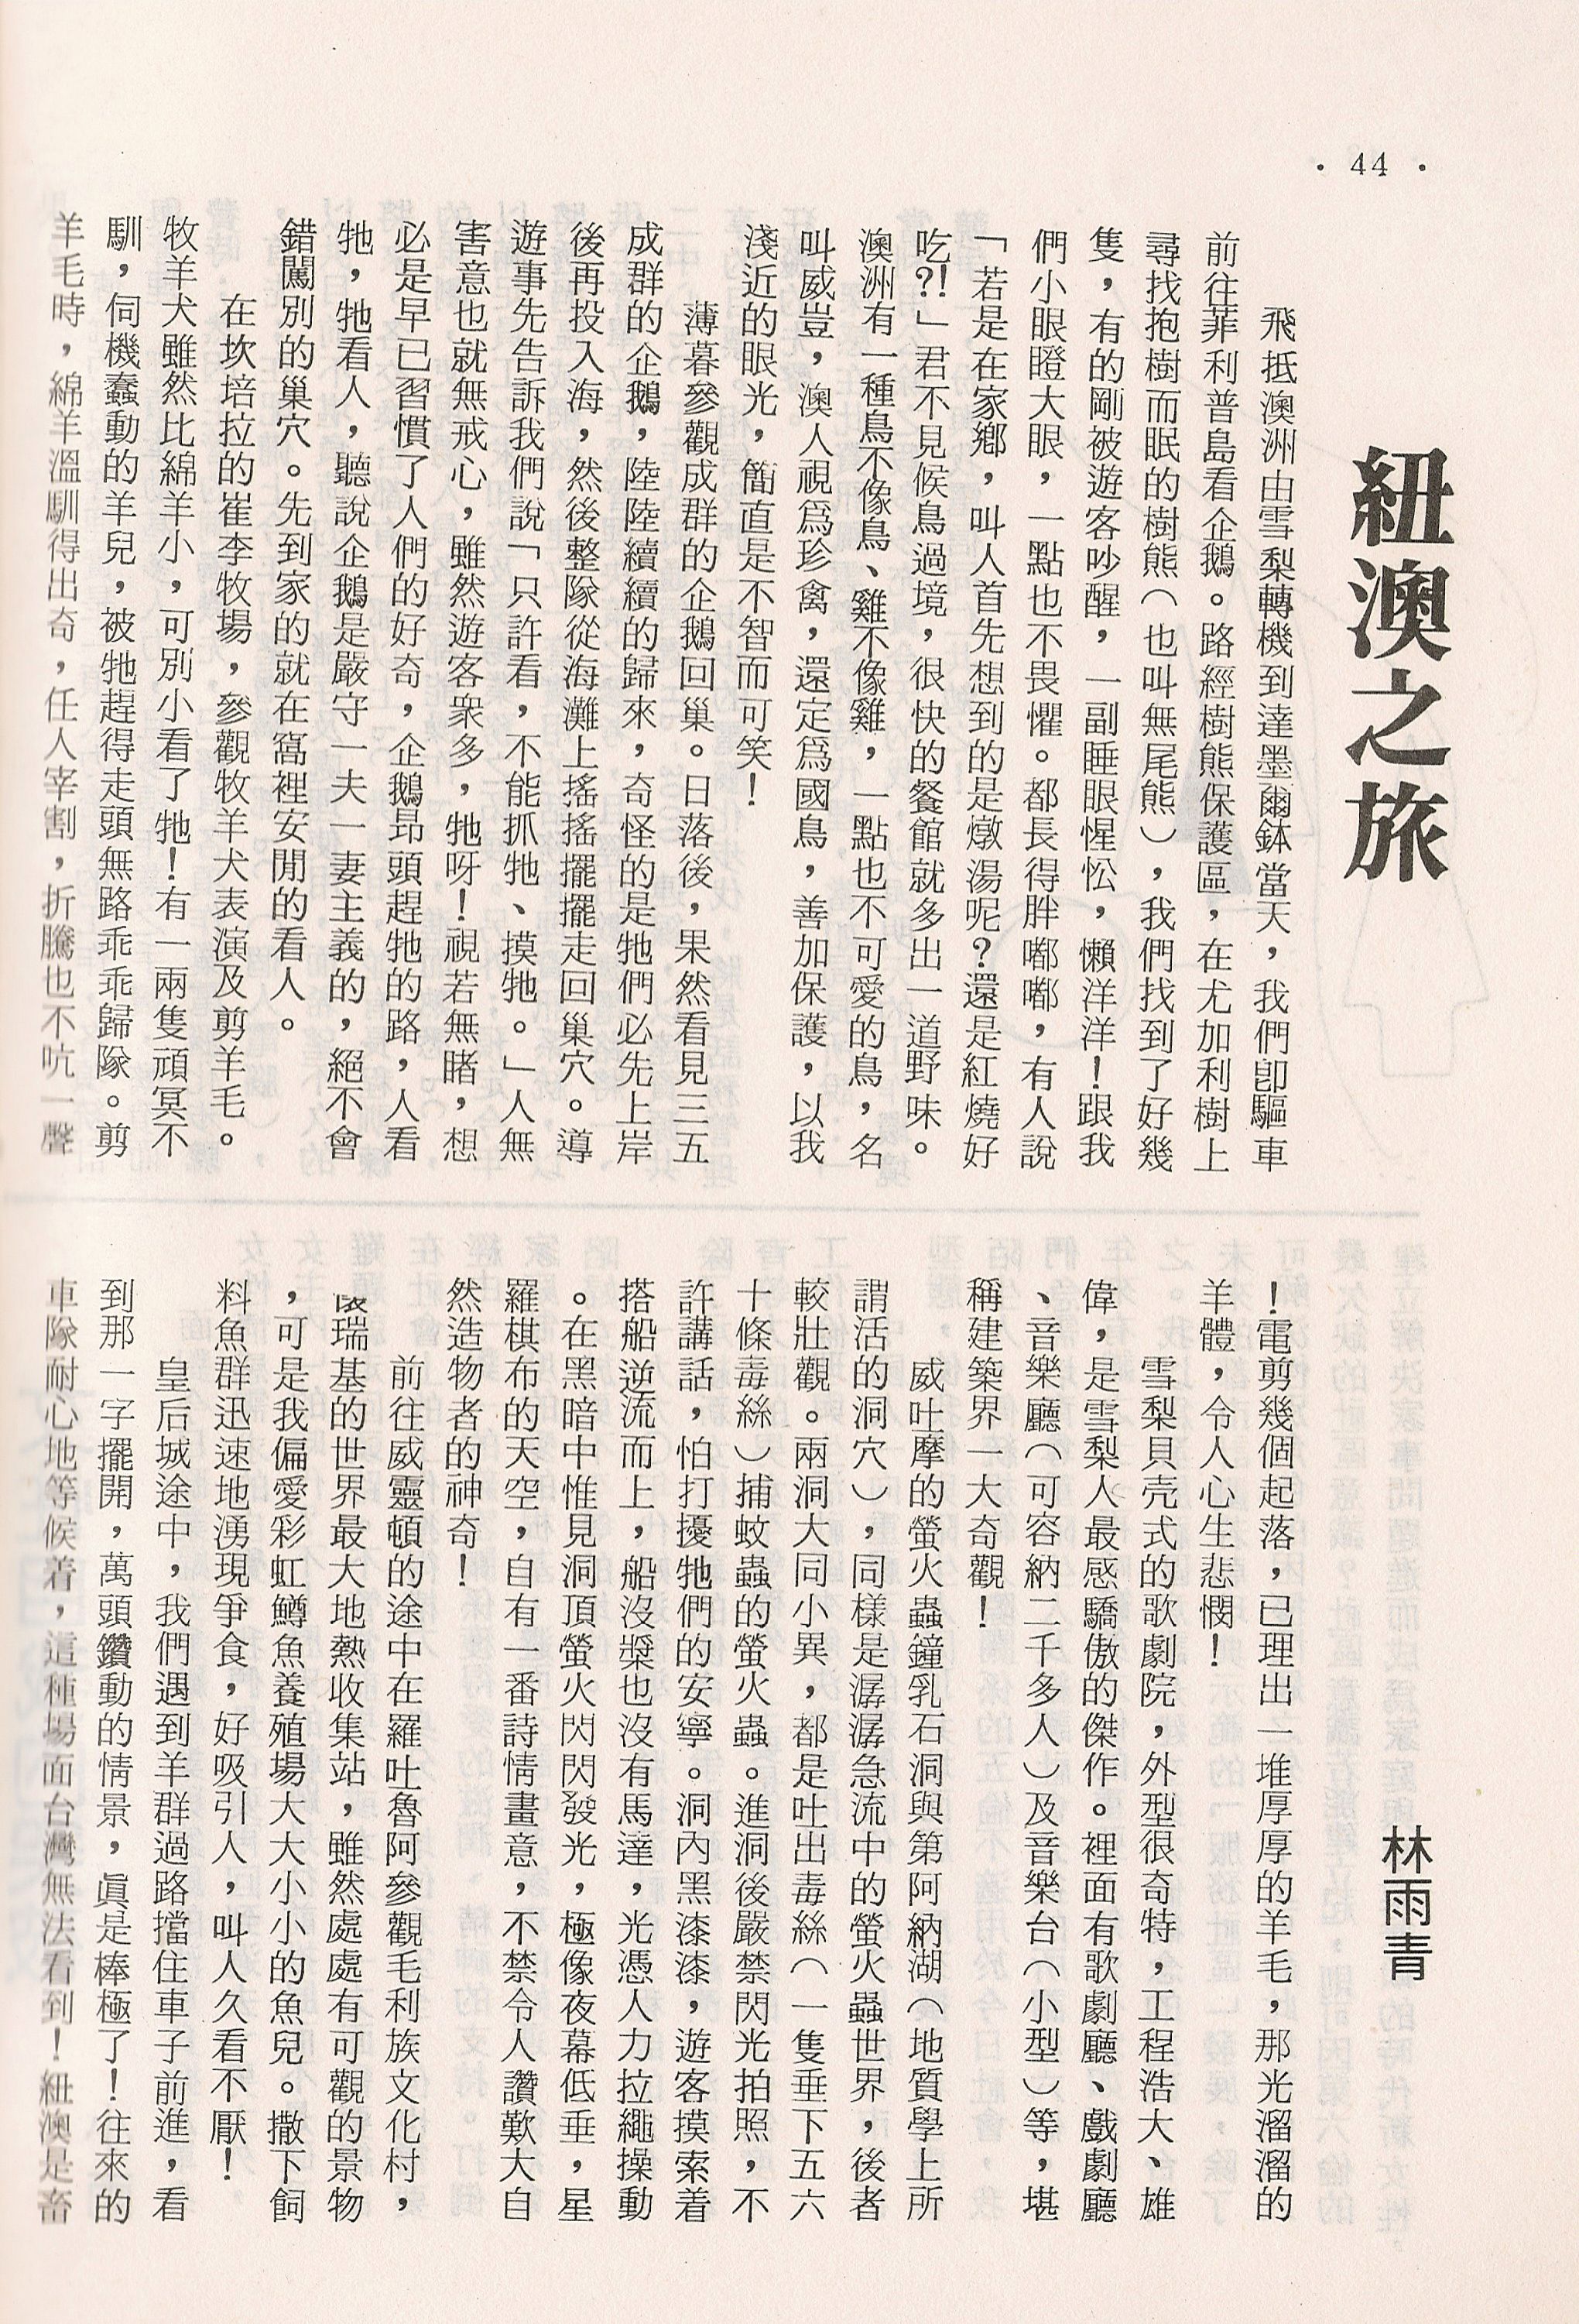 · 44 ·
紐澳之旅
林雨青
飛抵澳洲由雪梨轉機到達墨爾鉢當天，我們卽驅車
前往菲利普島看企鵝。路經樹熊保護區，在尤加利樹上
尋找抱樹而眠的樹熊（也叫無尾熊），我們找到了好幾
隻，有的剛被遊客吵醒，一副睡眼惺忪，懶洋洋！跟我
們小眼瞪大眼，一點也不畏懼。都長得胖嘟嘟，有人說
「若是在家鄉，叫人首先想到的是燉湯呢？還是紅燒好
吃?!」君不見候鳥過境，很快的餐館就多出一道野味。
澳洲有一種鳥不像鳥、雞不像雞，一點也不可愛的鳥，名
叫威豈，澳人視爲珍禽，還定爲國鳥，善加保護，以我
淺近的眼光，簡直是不智而可笑！
薄暮參觀成群的企鵝回巢。日落後，果然看見三五
成群的企鵝，陸陸續續的歸來，奇怪的是牠們必先上岸
後再投入海，然後整隊從海灘上搖搖擺擺走回巢穴。導
遊事先告訴我們說「只許看，不能抓牠、摸牠。」人無
害意也就無戒心，雖然遊客衆多，牠呀！視若無睹，想
必是早已習慣了人們的好奇，企鵝昂頭趕牠的路，人看
牠，牠看人，聽說企鵝是嚴守一夫一妻主義的，絕不會
錯闖別的巢穴。先到家的就在窩裡安閒的看人。
在坎培拉的崔李牧場，參觀牧羊犬表演及剪羊毛。
牧羊犬雖然比綿羊小，可別小看了牠！有一兩隻頑冥不
馴，伺機蠢動的羊兒，被牠趕得走頭無路乖乖歸隊。剪
羊毛時，綿羊溫馴得出奇，任人宰割，折騰也不吭一聲
！電剪幾個起落，已理出一堆厚厚的羊毛，那光溜溜的
羊體，令人心生悲憫！
雪梨貝壳式的歌劇院，外型很奇特，工程浩大、雄
偉，是雪梨人最感驕傲的傑作。裡面有歌劇廳、戲劇廳
、音樂廳（可容納二千多人）及音樂台（小型）等，堪
稱建築界一大奇觀！
威吐摩的螢火蟲鐘乳石洞與第阿納湖（地質學上所
謂活的洞穴），同樣是潺潺急流中的螢火蟲世界，後者
較壯觀。兩洞大同小異，都是吐出毒絲（一隻垂下五六
十條毒絲）捕蚊蟲的螢火蟲。進洞後嚴禁閃光拍照，不
許講話，怕打擾牠們的安寧。洞內黑漆漆，遊客摸索着
搭船逆流而上，船沒槳也沒有馬達，光憑人力拉繩操動
。在黑暗中惟見洞頂螢火閃閃發光，極像夜幕低垂，星
羅棋布的天空，自有一番詩情畫意，不禁令人讚歎大自
然造物者的神奇！
前往威靈頓的途中在羅吐魯阿參觀毛利族文化村，
懷瑞基的世界最大地熱收集站，雖然處處有可觀的景物
，可是我偏愛彩虹鱒魚養殖場大大小小的魚兒。撒下飼
料魚群迅速地湧現爭食，好吸引人，叫人久看不厭！
皇后城途中，我們遇到羊群過路擋住車子前進，看
到那一字擺開，萬頭鑽動的情景，眞是棒極了！往來的
車隊耐心地等候着，這種場面台灣無法看到！紐澳是畜